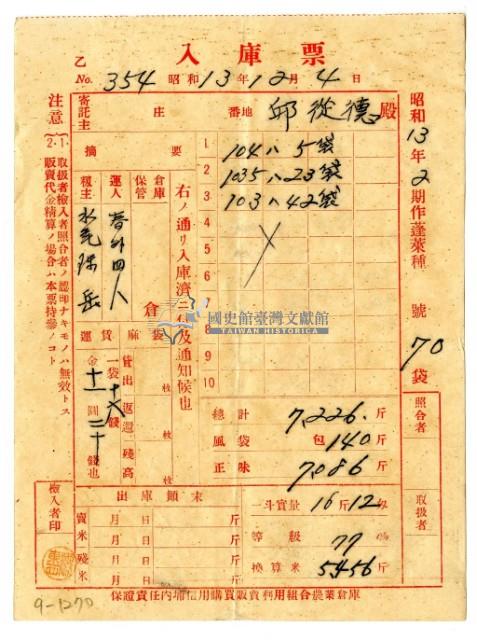 入庫票
乙
No. 354 昭和13年12月4日
寄託主 庄 番地 邱從德 殿
摘要
1 104ハ 5袋
2 1035ハ 23袋
3 103ハ 42袋
4
5
6
7
8
9
10
倉庫保管
運人
種主
右ノ通リ入庫濟ニ付及通知候也
倉
運賃
麻袋
一袋 十六錢
金十一圓二十錢也
貸出 枚
返還 枚
殘高 枚
總計 7,226.斤
風袋 包 140斤
正味 7,086斤
出庫顛末
賣米 月 日 斤
月 日 斤
殘米 月 日 斤
月 日 斤
一斗實量 16斤12
等級 77
換算米 5456斤
昭和13年2期作蓬萊種 號 70袋
照合者
取扱者
注意
1. 取扱者檢入者照合者ノ認印ナキモノハ無效トス
2. 販賣代金精算ノ場合ハ本票持參ノコト
檢入者印
保證責任內埔信用購買販賣利用組合農業倉庫
9-1270
國史館臺灣文獻館
TAIWAN HISTORICA